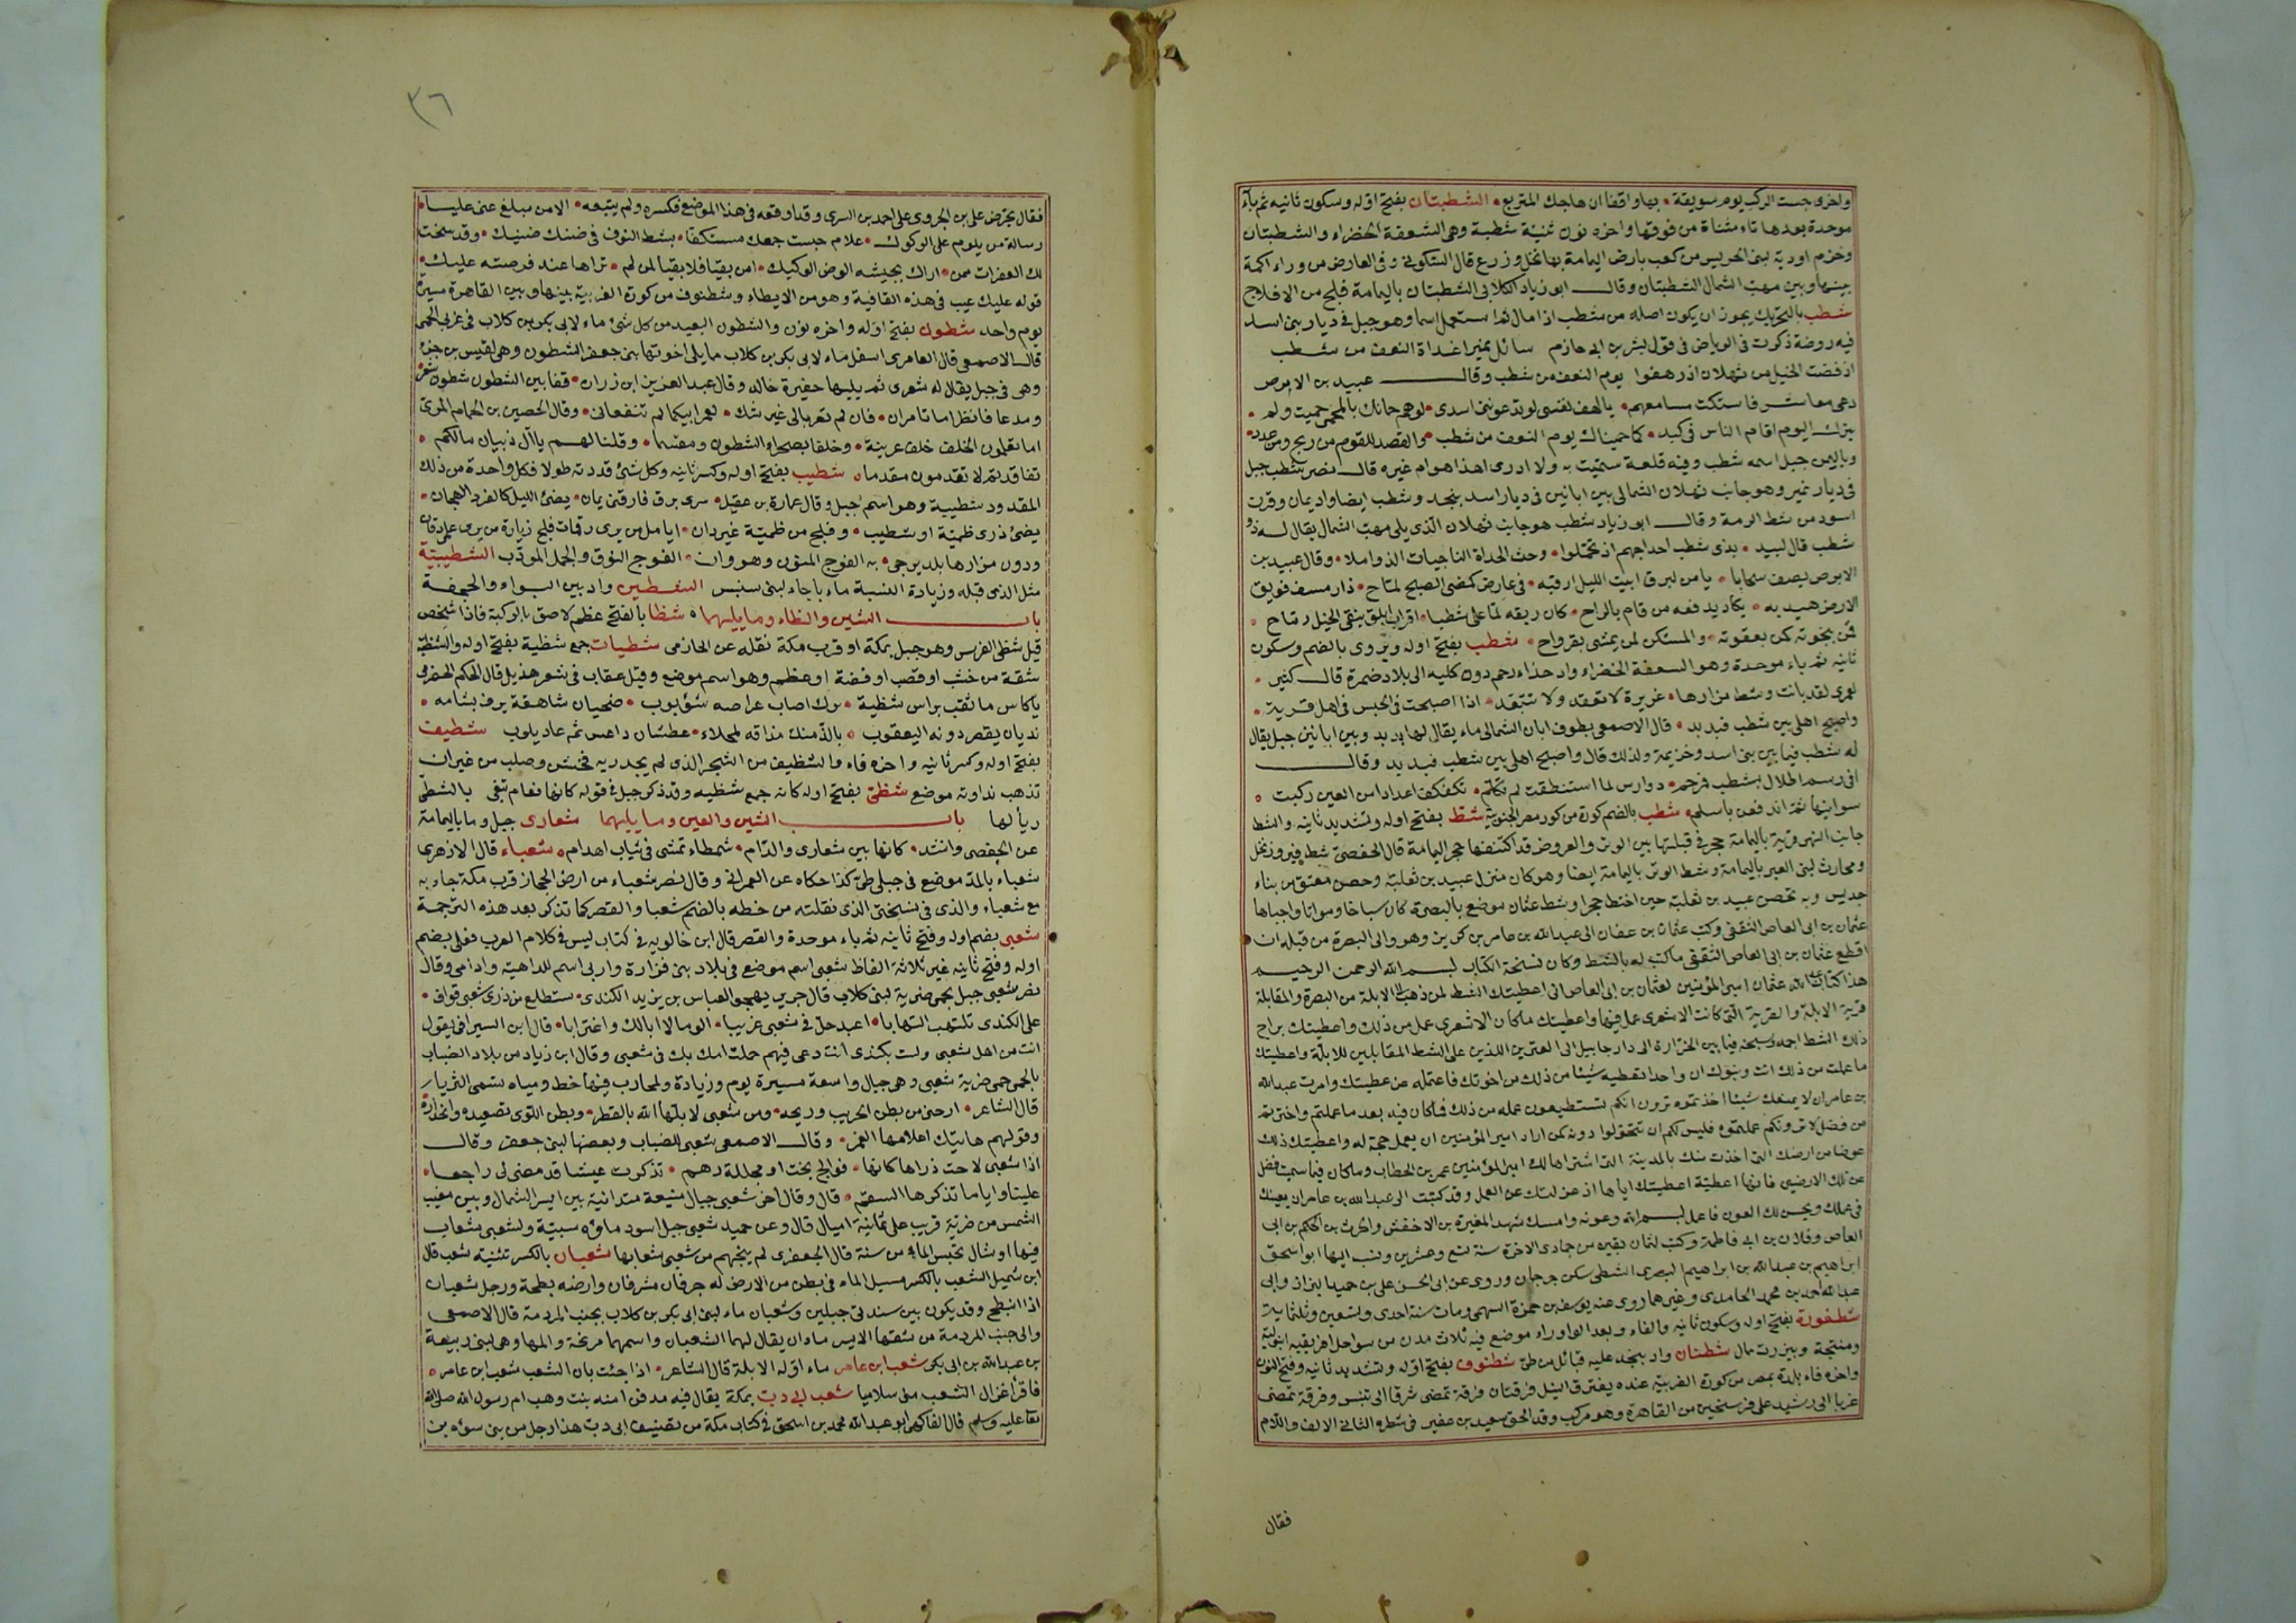 واخرى جست الركب يوم سويقة • بها واقفا ان هاجك المتربع • الشطبتان بفتح اوله وسكون ثانيه ثم باء
موحدة بعدها تاء مثناة من فوقها واخره نون تثنية شطبة وهى الشعفة الخضراء والشطبتان
اودية لبنى الحريس من كعب بارض اليمامة بها نخل وزرع قال السكونى وفى العارض من وراء اكمة
بينها وبين مهب الشمال الشطبتان وقال ابو زياد الكلابى الشطبتان باليمامة فلج من الافلاج
شطب بالتحريك يجوز ان يكون اصله من شطب اذا مال ثم استعمل اسما وهو جبل فى ديار بنى اسد
فيه روضة ذكرت فى الرياض فى قول بشر بن ابى حازم سائل نميرا غداة النعف من شطب
اذ فضت الخيل من ثهلان اذ رهفوا يوم النعف من شطب وقال عبيد بن الابرص
دعى معاشر فاستكت مسامعهم • يالهف نفسى لو تدعو بنى اسد •
كما حميناك يوم النعف من شطب • والقصد للقوم من ريح ومن عدد •
وباليمن جبل اسمه شطب وفيه قلعة سميت به ولا ادرى اهذا هو ام غيره قال نصر شطب جبل
فى ديار نمير وهو جانب ثهلان الشمالى بين ابانين فى ديار اسد بنجد وشطب ايضا واد يمان وقرن
اسود من شط الرمة وقال ابو زياد شطب هو جانب ثهلان الذى يلى مهب الشمال يقال له ذو
شطب قال لبيد • بذى شطب احداجهم اذ تحملوا • وحث الحداة الناجيات الذواملا • وقال عبيد بن
الابرص يصف سحابا • يا من لبرق ابيت الليل ارقبه • فى عارض كمضى الصبح لماح • دار مسف فويق
الارض هيدبه • يكاد يدفعه من قام بالراح • كان ريقه لما على شطبا • اقراب ابلق ينفى الخيل رماح •
فمن بنجوته كمن بعقوته • والمستكن كمن يمشى بقرواح • شطب بفتح اوله ويروى بالضم وسكون
ثانيه ثم باء موحدة وهو السعفة الخضراء واد حذاء رحم دون كليه الى بلاد ضمرة قال كثير •
لعمرى لقد بانت وشط مزارها • عزيزة لا تفقد ولا تتبعد • اذا اصبحت فى الجس فى اهل قرية •
واصبح اهلى بين شطب فبدبد • قال الاصمعى بطوف ابان الشمالى ماء يقال لها بدبد وبين ابانين جبل يقال
له شطب فيما بين بنى اسد وخزيمة ولذلك قال واصبح اهلى بين شطب فبدبد وقال
افى رسم اطلال بشطب فرجم • دوارس لما استنطقت لم تكلم • تكفكف اعدادا من العين ركبت •
سوانيها ثم اندفعن باسلم • شطب بالضم كورة من كور مصر الجنوبية شط بفتح اوله وتشديد ثانيه والشط
جانب النهر قرية باليمامة حجر فى قبلتها بين الوتر والعروض قد اكتنفها حجر اليمامة قال الحفصى شط فيروز نخل
ومحارث لبنى العنبر باليمامة وشط الوتر باليمامة ايضا وهو كان منزل عبيد بن ثعلبة وحصن معتق من بناء
جديس وبه تحصن عبيد بن ثعلبة حين اختط حجرا وشط عثمان موضع بالبصرة كان سباخا ومواتا واحياها
عثمان بن ابى العاص الثقفى وكتب عثمان بن عفان الى عبد الله بن عامر بن كريز وهو والى البصرة من قبله ان
اقطع عثمان بن ابى العاص الثقفى ما كتب له بالشط وكان نسخة الكتاب بسم الله الرحمن الرحيم
هذا كتاب عبد الله عثمان امير المؤمنين لعثمان بن ابى العاص انى اعطيتك الشط لمن ذهب الى الابلة من البصرة والمقابلة
قرية الابلة والقرية التى كانت الاشعرى عمل فيها واعطيتك ما كان الاشعرى عمل من ذلك واعطيتك براح
ذلك الشط اجمه وسبخه فيما بين الخرارة الى دار جابيل الى القبرين اللذين على الشط المقابلين للابلة واعطيتك
ما عملت من ذلك انت وبنوك ان واحدا تعطيه شيئا من ذلك من اخوتك فاعتمله عن عطيتك وامرت عبد الله
بن عامر ان لا يمنعك شيئا اخذتموه ترون انكم تستطيعون عمله من ذلك فما كان فيه بعد ما عملتم
من فضل لا ترونكم عملتموه فليس لكم ان تتحولوا دونه لمن اراد امير المؤمنين ان يعمل حجة له واعطيتك ذلك
عوضا من ارضك التى اخذت منك بالمدينة التى اشتراها لك امير المؤمنين عمر بن الخطاب وما كان فيما سميت فضل
عن تلك الارضين فانها اعطية اعطيتك اياها اذ عزلتك عن العمل وقد كتبت الى عبد الله بن عامر ان يعينك
فى عملك ويحسن لك العون فاعمل بسم الله وعونه وامسك شهد المغيرة بن الاخفش والحرث بن الحكم بن ابى
العاص وفلان بن ابى فاطمة وكتب لثمان بقين من جمادى الاخرة سنة تسع وعشرين ونسب اليها ابو اسحق
ابراهيم بن عبد الله بن ابراهيم البصرى الشطى سكن جرجان وروى عن ابى الحسن على بن حميد البزاز وابى
عبد الله احمد بن محمد الحامدى وغيرهما روى عنه يوسف بن حمزة السهمى ومات سنة احدى وتسعين وثلثماية
شطفورة بفتح اوله وسكون ثانيه والفاء وبعد الواو راء موضع فيه ثلاث مدن من سواحل افريقيه انبلونة
ومتيجة وبنزرت مال شطنان واد بنجد عليه قبائل من طى شطنوف بفتح اوله وتشديد ثانيه وفتح النون
واخره فاء بلدة بمصر من كورة الغربية عنده يفترق النيل فرقتان فرقة تمضى شرقا الى تنيس وفرقة تمضى
غربا الى رشيد على فرسخين من القاهرة وهو مركب وقد الحق سعيد بن عفير فى شطره الثانى الالف واللام
فقال
٣٦
فقال يحرض على بن الجروى على احمد بن السرى وقد اوقعه فى هذا الموضع فكسره ولم يتبعه • الا من مبلغ عنى عليا •
رسالة من يلوم على الركوك • علام حبست جمعك مستكفا • بشط النوف فى ضنك ضنيك • وقد سنحت
لك الغفرات ممن • اراك بجيشه الوض الوكيك • امن بقيا فلا بقيا لمن لم • تراها عند فرصته عليك •
قوله عليك عيب فى هذه القافية وهو من الايطاء وشطنوف من كورة الغربية بينها وبين القاهرة مسيرة
يوم واحد شطون بفتح اوله واخره نون والشطون البعيد من كل شئ ماء لابى بكر بن كلاب فى غربى الحمى
قال الاصمعى قال العامرى اسفل ماء لابى بكر بن كلاب مما يلى اخوتها بنى جعفر الشطون وهى لقيس بن جزء
وهى فى جبل يقال له شعرى ثم يليها حفيرة خالد وقال عبد العزيز ابن زرارة • قفا بين الشطون شطون شعر
ومدعا فانظرا ما تامران • فان لم تعربا لى غير شك • لعمر ابيكما لم تنفعانى • وقال الحصين بن الحمام المرى
اما تعلمون الحلف حلف عرينة • وحلفا بصحراء الشطون ومقسما • وقلنا لهم ياآل ذبيان مالكم •
تفاقدتم لا تقدمون مقدما • شطيب بفتح اوله وكسر ثانيه وكل شئ قددته طولا فكل واحدة من ذلك
المقدود شطيبة وهو اسم جبل وقال عمارة بن عقيل • سرى برق فارقنى يمان • يضئ الليل كالفرد الهجان •
يضئ ذرى ظمية او شطيب • وفلج من ظمية غير دان • ايامل من يرى رقمات فلج زيارة من يرى علمى قان
ودون مزارها بلد يرجى • به الفوج المنون وهو وان • الفوج النوق والجمل المودب الشطيبية
مثل الذى قبله وزيادة النسبة ماء باجاء لبنى سنبس الشطين واد بين البواء والجحفة
باب الشين والظاء وما يليهما • شظا بالفتح عظم لاصق بالركبة فاذا شخص
قيل شظى الفرس وهو جبل بمكة او قرب مكة نقله عن الحازمى شظيات جمع شظية بفتح اوله والشظية
شقة من خشب او قصب او فضة او عظم وهو اسم موضع وقيل عقاب فى شعر هذيل قال الحكم الحضرمى
ياكاس ما ثقب براس شظية • نزل اصاب عراصه شؤبوب • ضحيان شاهقة يرف بشامه •
نديان يقصر دونه اليعقوب • بالذ منك مذاقه لمحلاء • عطشان داعس ثم عاد يلوب شظيف
بفتح اوله وكسر ثانيه واخره فاء والشظيف من الشجر الذى لم يجد ريه فخشن وصلب من غير ان
تذهب نداوته موضع شظى بفتح اوله كانه جمع شظيه وقد ذكر جبل فى قوله كانها نعام تبغى بالشظى
ريألها باب الشين والعين وما يليهما شعارى جبل وما باليمامة
عن الحفصى وانشد • كانها بين شعارى والدام • شمطاء تمشى فى ثياب اهدام • شعباء قال الازهرى
شعباء بالمد موضع فى جبلى طى كذا حكاه عن العمرانى وقال نصر شعباء من ارض الحجاز قرب مكة جاء به
مع شعباء والذى فى نسختى الذى نقلته من خطه بالضم شعبا والقصر كما تذكر بعد هذه الترجمة
شعبى بضم اوله وفتح ثانيه ثم باء موحدة والقصر قال ابن خالويه فى كتاب ليس فى كلام العرب فعلى بضم
اوله وفتح ثانيه غير ثلاثة الفاظ شعبى اسم موضع فى بلاد بنى فزارة واربى اسم للداهية وادامى وقال
نصر شعبى جبل بحمى ضرية لبنى كلاب قال جرير يهجو العباس بن يزيد الكندى • ستطلع من ذرى شعبى قواف •
على الكندى تلتهب التهابا • اعبد حل فى شعبى غريبا • الوما لا ابالك واغترابا • قال ابن السيرافى يقول
انت من اهل شعبى ولست بكندى انت دعى فيهم حملت امك بك فى شعبى وقال ابن زياد من بلاد الضباب
بالحمى حمى ضرية شعبى وهى جبال واسعة مسيرة يوم وزيادة ولمحارب فيها خط ومياه تسمى الثريا
قال الشاعر • ارحنى من بطن الحريب وريحه • ومن شعبى لا بلها الله بالقطر • وبطن اللوى تصعيده وانحداره
وقولهم هاتيك اعلامها الغمر • وقال الاصمعى شعبى للضباب وبعضها لبنى جعفر وقال
اذا شعبى لاحت ذراها كانها • فوالج بخت او مجللة دهم • تذكرت عيشا قد مضى لى راجعا •
علينا واياما تذكرها السقم • قال وقال اخر شعبى جبال منيعة متدانية بين ايسر الشمال وبين مغيب
الشمس من ضرية قريب على ثمانية اميال قال وعن حميد شعبى جبل اسود ماؤه سبية ولشعبى شعاب
فيها اوشال تحبس الماء من سنة قال الجعفرى لم ينجهم من شعبى شعابها شعبان بالكسر تثنية شعب قال
ابن شميل الشعب بالكسر مسيل الماء فى بطن من الارض له جرفان مشرفان وارضه بطحة ورجل شعبان
اذا انبطح وقد يكون بين سندى جبلين وشعبان ماء لبنى ابى بكر بن كلاب بجنب المردمة قال الاصمعى
والى جنب المردمة من شقها الايسر ماءان يقال لهما الشعبان واسمهما مريخة والمها وهى لبنى ربيعة
بن عبد الله بن ابى بكر شعب ابن عامر ماء اوله الابلة قال الشاعر • اذا جئت بان الشعب شعب ابن عامر •
فاقر اغزال الشعب منى سلاميا شعب ابى دب بمكة يقال فيه مدفن امنه بنت وهب ام رسول الله صلى الله
تعا عليه وسلم قال الفاكهى ابو عبد الله محمد بن اسحق فى كتاب مكة من تصنيفه ابى دب هذا رجل من بنى سوءه بن